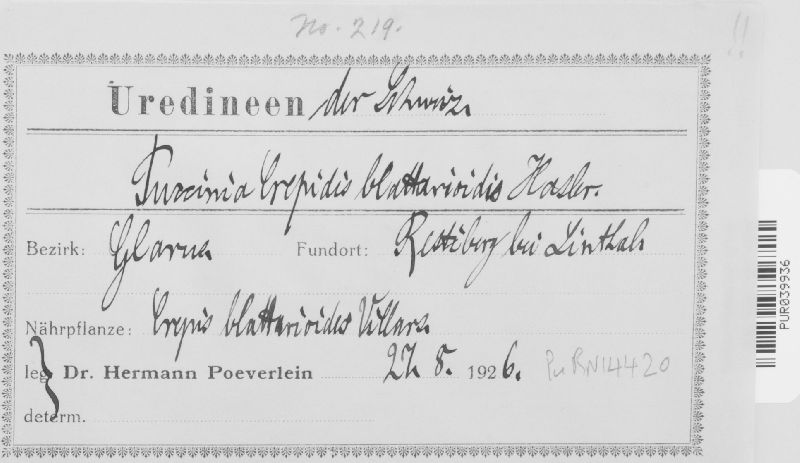 No. 219.
!!
Uredineen der Schweiz.
Puccinia Crepidis blattarioidis Hasler.
Bezirk: Glarus Fundort: Restiberg bei Linthal.
Nährpflanze: Crepis blattarioides Villars.
leg. Dr. Hermann Poeverlein 27. 8. 1926. PuRN14420
determ.
PUR039936